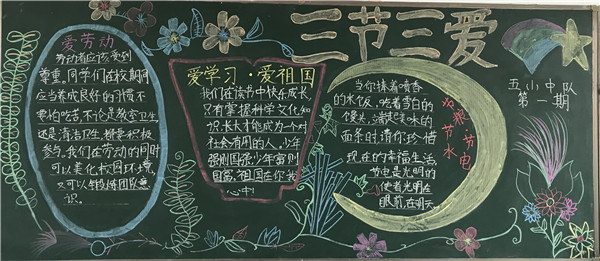 三节三爱
五小中队
第一期
爱劳动
劳动者应该受到
尊重,同学们在校期间
应当养成良好的习惯不
要怕吃苦,不论是教室卫生
还是清洁卫生,都要积极
参与。我们在劳动的同时
可以美化校园环境,
又可以锻炼团队意
识。
爱学习·爱祖国
我们在读书中快乐成长
只有掌握科学文化知
识,长大才能成为一个对
社会有用的人,少年
强则国强少年富则
国富,祖国在你我
心中!
当你揉着喷香
的米饭,吃着雪白的
馒头,端起美味的
面条时,请你珍惜
现在的幸福生活,
节电是光明的
使者光明在
眼前,在明天。
节粮
节水
节电